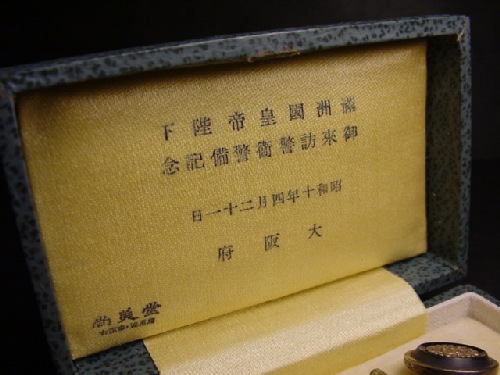 滿洲國皇帝陛下
御來訪警衞警備記念
昭和十年四月二十一日
大阪府
尚美堂